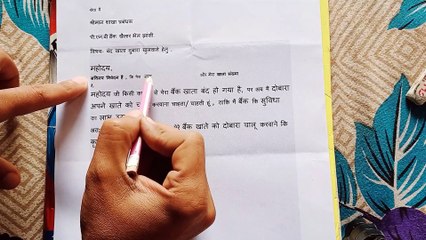 सेवा में
श्रीमान शाखा प्रबंधक
पी.एन.बी बैंक
विषय- बंद खाता दुबारा खुलवाने हेतु .
महोदय,
सविनय निवेदन है, कि मेरा नाम और मेरा खाता संख्या
है.
महोदय जी किसी मेरा बैंक खाता बंद हो गया है, पर अब मै दोबारा
अपने खाते को करवाना चाहता/ चाहती हूं, ताकि मैं बैंक कि सुविधा
का लाभ
बैंक खाते को दोबारा चालू करवाने कि